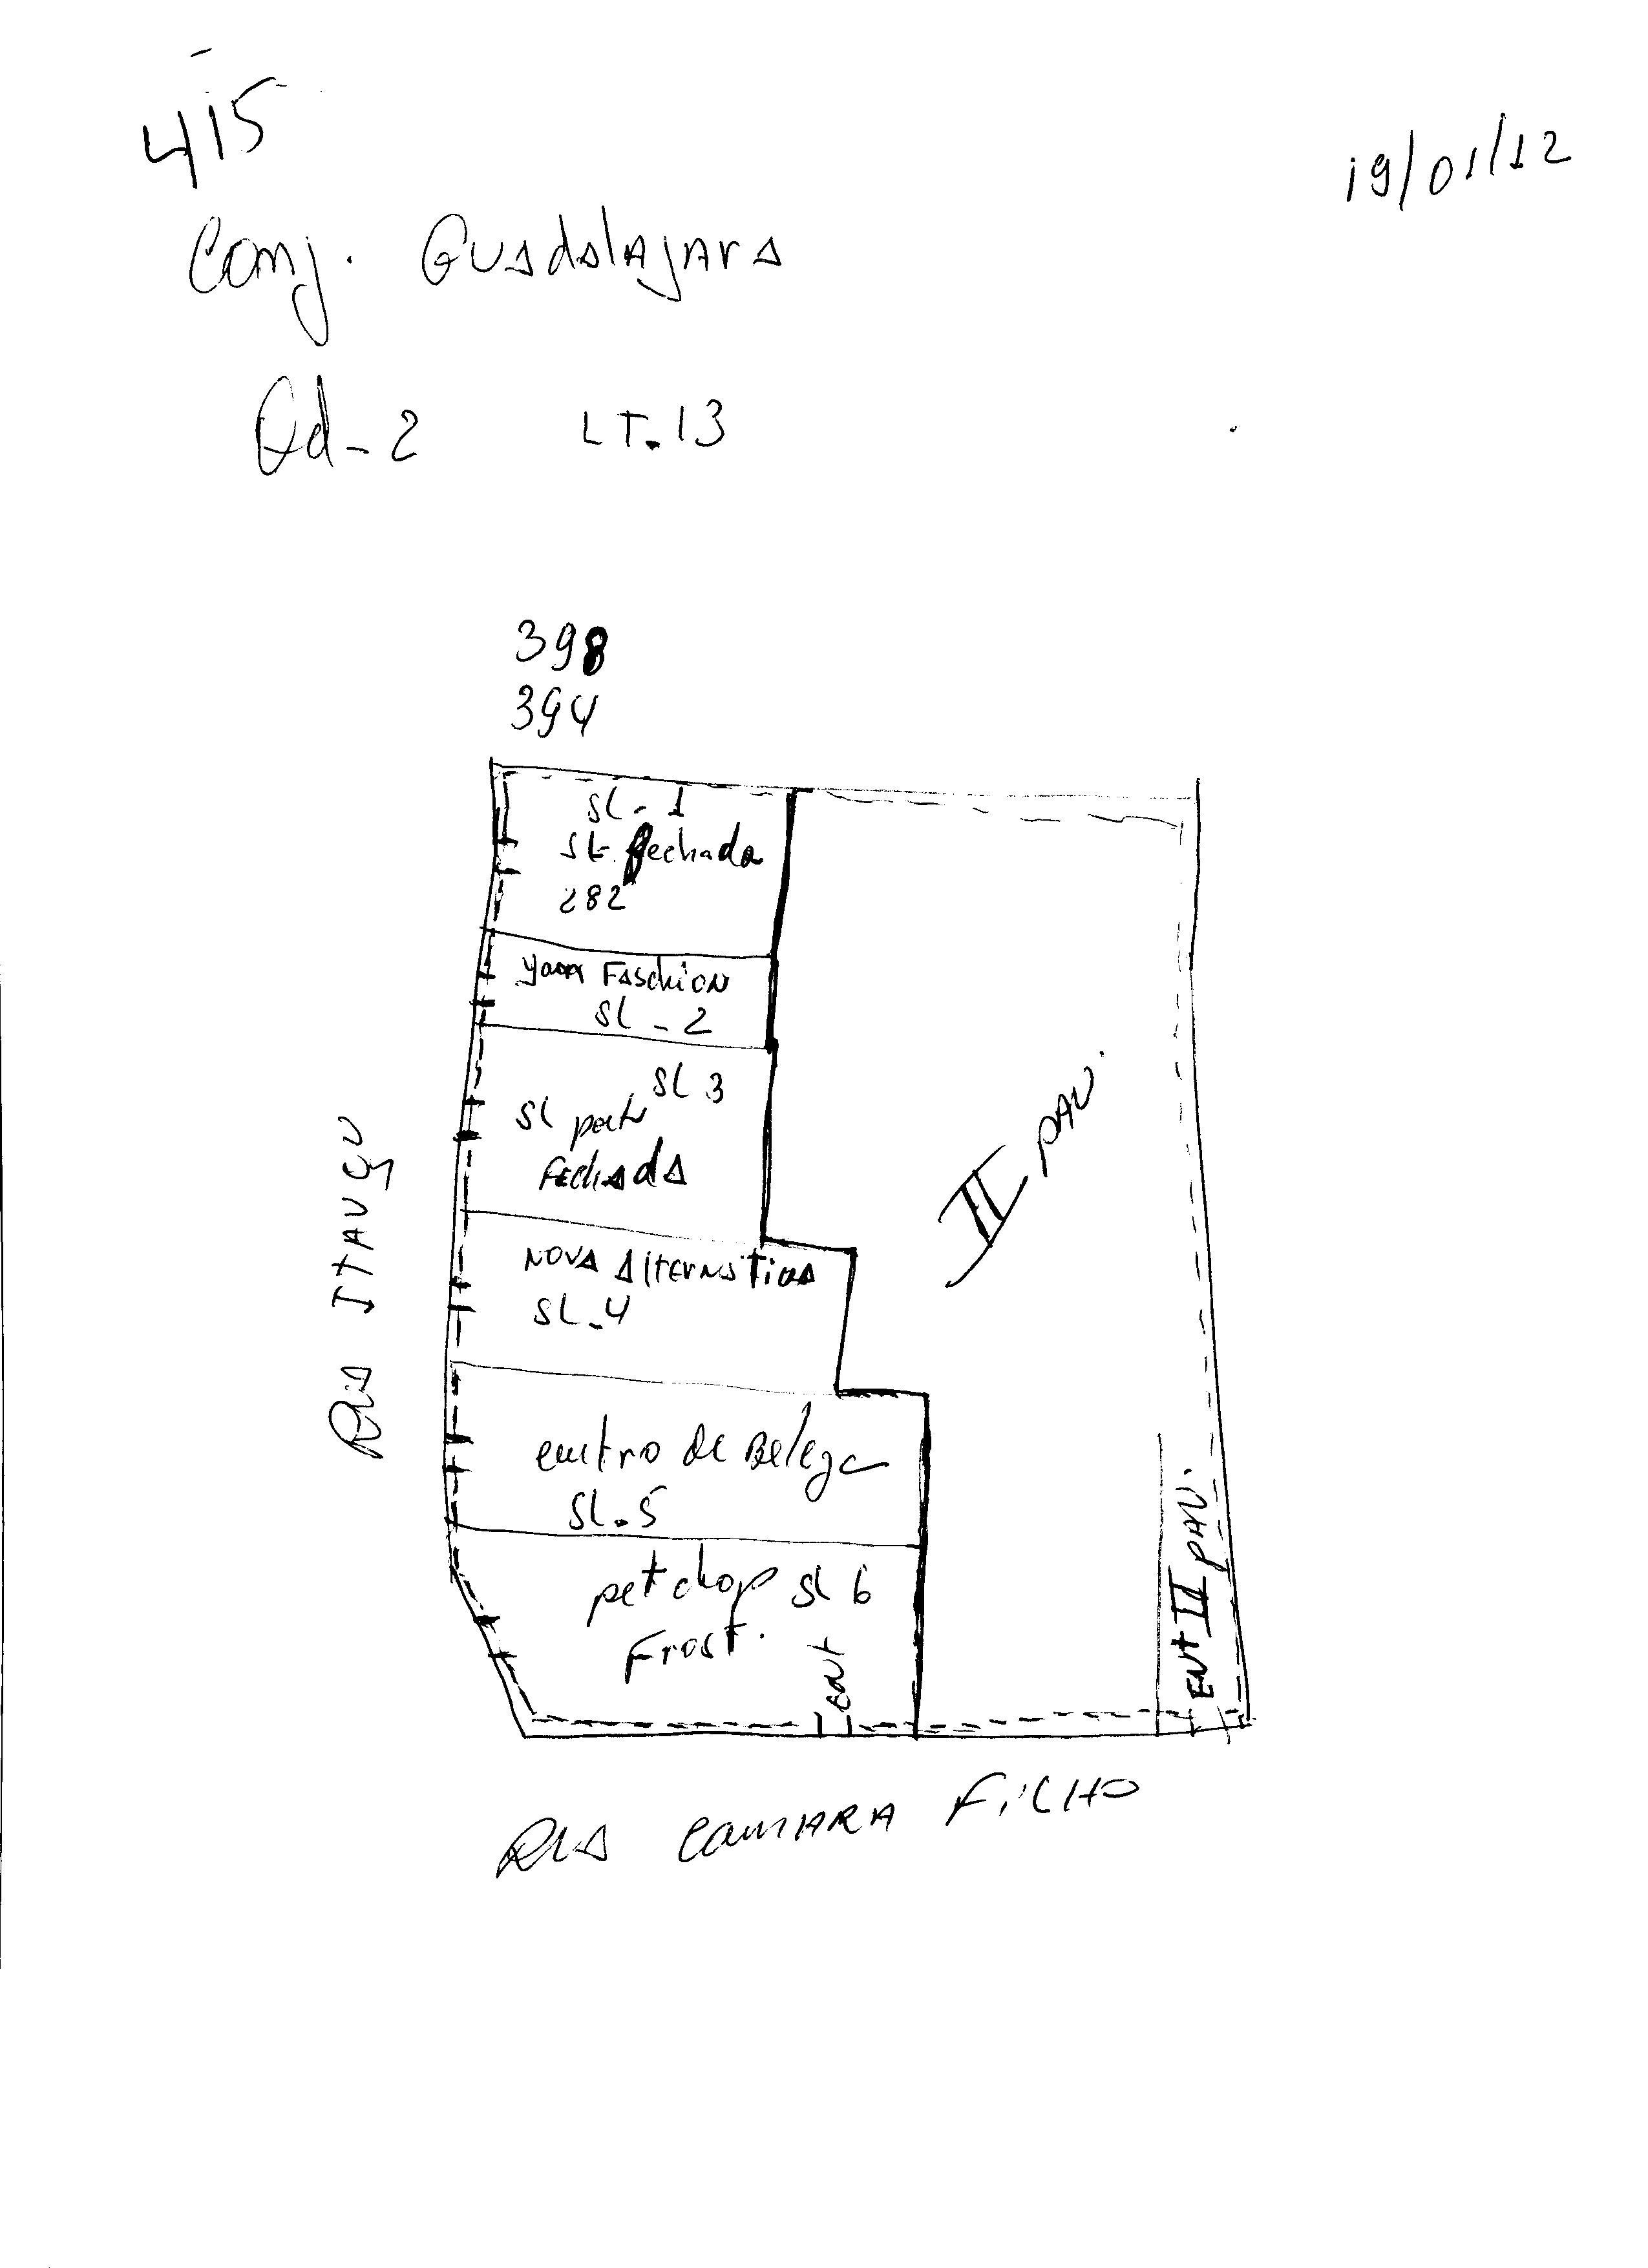 415
19/01/12
Conj. Guadalajara
Qd-2 LT.13
398
394
SL-1
SL fechada
282
FASCHION
SL-2
SL 3
SL
FECHADA
NOVA ALTERNATIVA
SL-4
RUA ITAUÇU
II PAV.
centro de Beleza
SL-5
pet chop SL 6
Frost.
ENT
ENT II PAV.
RUA CAMARA FILHO